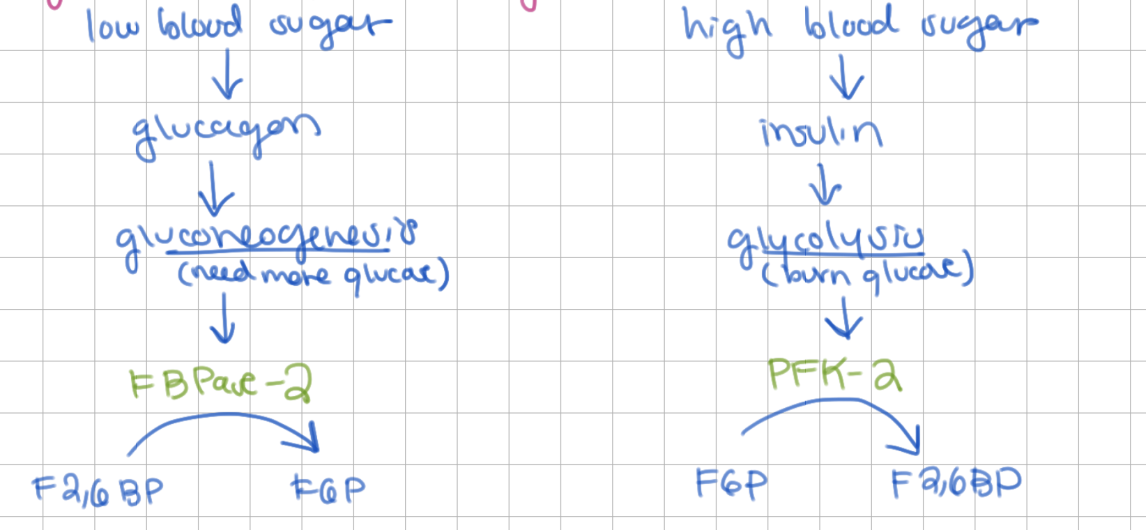 low blood sugar
high blood sugar
glucagon
insulin
gluconeogenesis
glycolysis
(need more glucose)
(burn glucose)
FBPase-2
PFK-2
F2,6BP
F6P
F6P
F2,6BP